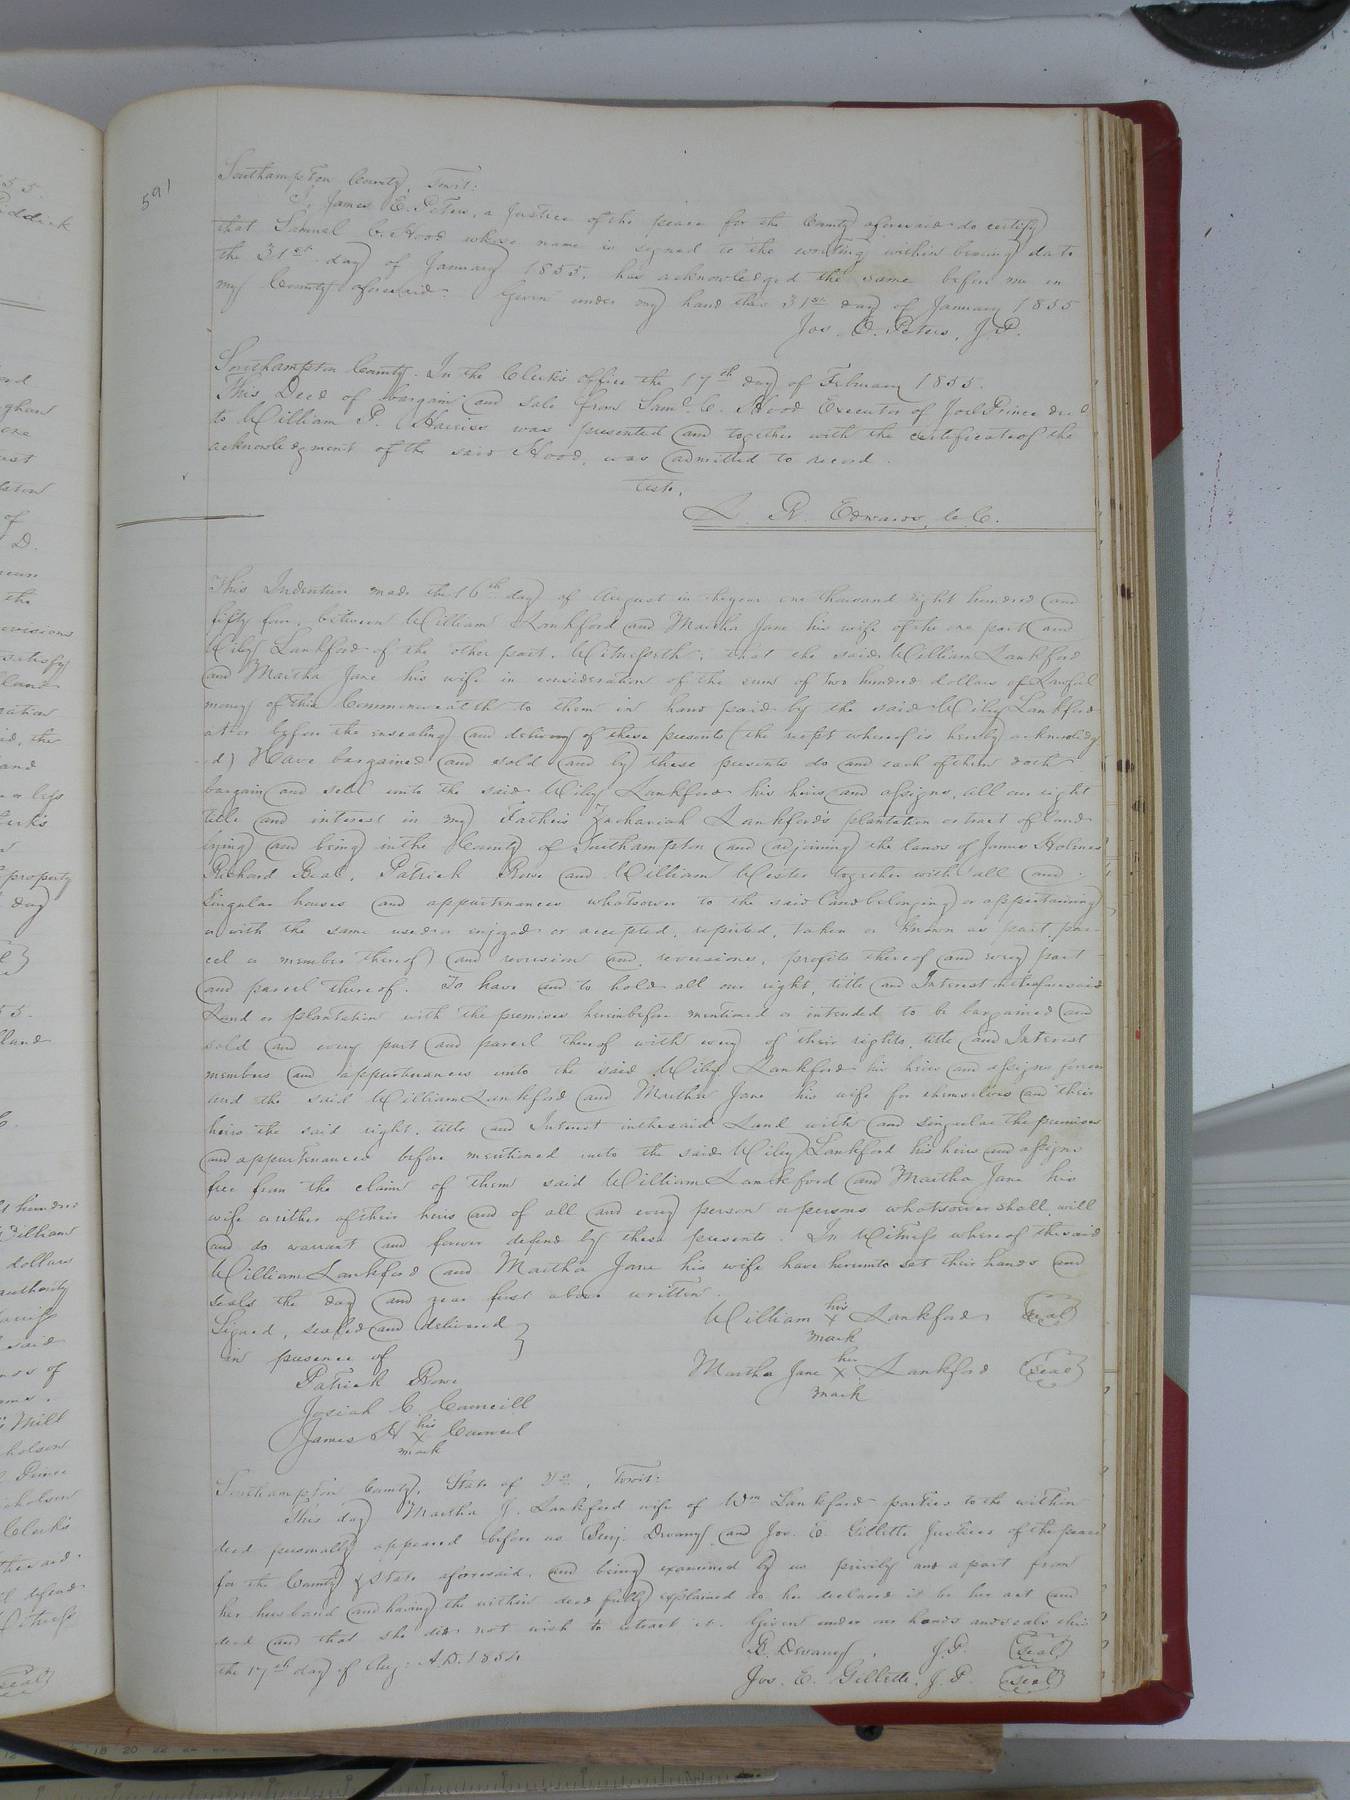 591
Southampton County, Towit:
I, James E. Peters, a Justice of the peace for the County aforesaid do certify
that Samuel C. Hood whose name is signed to the writing within bearing date
the 31st day of January 1855, has acknowledged the same before me in
my County aforesaid. Given under my hand this 31st day of January 1855
Jas. E. Peters, J.P.
Southampton County. In the Clerk's office the 17th day of February 1855.
This Deed of bargain and sale from Saml. C. Hood Executor of Joel Prince decd
to William P. Harriss was presented and together with the certificate of the
acknowledgment of the said Hood, was admitted to record.
Teste,
L. R. Edwards, C. C.
This Indenture made the 16th day of August in the year one thousand eight hundred and
fifty four, between William Lankford and Martha Jane his wife of the one part and
Wiley Lankford of the other part. Witnesseth: that the said William Lankford
and Martha Jane his wife in consideration of the sum of two hundred dollars of Lawful
money of this Commonwealth to them in hand paid by the said Wiley Lankford
at or before the ensealing and delivery of these presents (the receipt whereof is hereby acknowledg
-ed) Have bargained and sold and by these presents do and each of them doth
bargain and sell unto the said Wiley Lankford his heirs and assigns, all our right
title and interest in my Father's Zachariah Lankford's plantation or tract of land
lying and being in the County of Southampton and adjoining the lands of James Holmes
Richard Beal, Patrick Rowe and William Wester together with all and
singular houses and appurtenances whatsoever to the said land belonging or appertaining
or with the same used or enjoyed or accepted, reputed, taken or known as part, par-
cel or member thereof and reversion and reversions, profits thereof and every part
and parcel thereof. To have and to hold all our right, title and Interest in the aforesaid
Land or plantation with the premises hereinbefore mentioned or intended to be bargained and
sold and every part and parcel thereof with every of their rights, title and Interest
members and appurtenances unto the said Wiley Lankford his heirs and assigns forever
and the said William Lankford and Martha Jane his wife for themselves and their
heirs the said right, title and Interest in the said Land with and singular the premises
and appurtenances before mentioned unto the said Wiley Lankford his heirs and assigns
free from the claim of them said William Lankford and Martha Jane his
wife or either of their heirs and of all and every person or persons whatsoever shall, will
and do warrant and forever defend by these presents. In Witness whereof the said
William Lankford and Martha Jane his wife have hereunto set their hands and
seals the day and year first above written.
Signed, sealed and delivered
in presence of
William his X mark Lankford (seal)
Martha Jane her X mark Lankford (seal)
Patrick Rowe
Josiah C. Councill
James H his X mark Council
Southampton County, State of Va., Towit:
This day Martha J. Lankford wife of Wm Lankford parties to the within
deed personally appeared before us Benj. Devany and Jos. E. Gillette Justices of the peace
for the County & State aforesaid, and being examined by us privily and apart from
her husband and having the within deed fully explained to her declared it be her act and
deed and that she did not wish to retract it. Given under our hands and seals this
the 17th day of Aug: A.D. 1854
B. Devany, J.P. (seal)
Jos. E. Gillette, J.P. (seal)